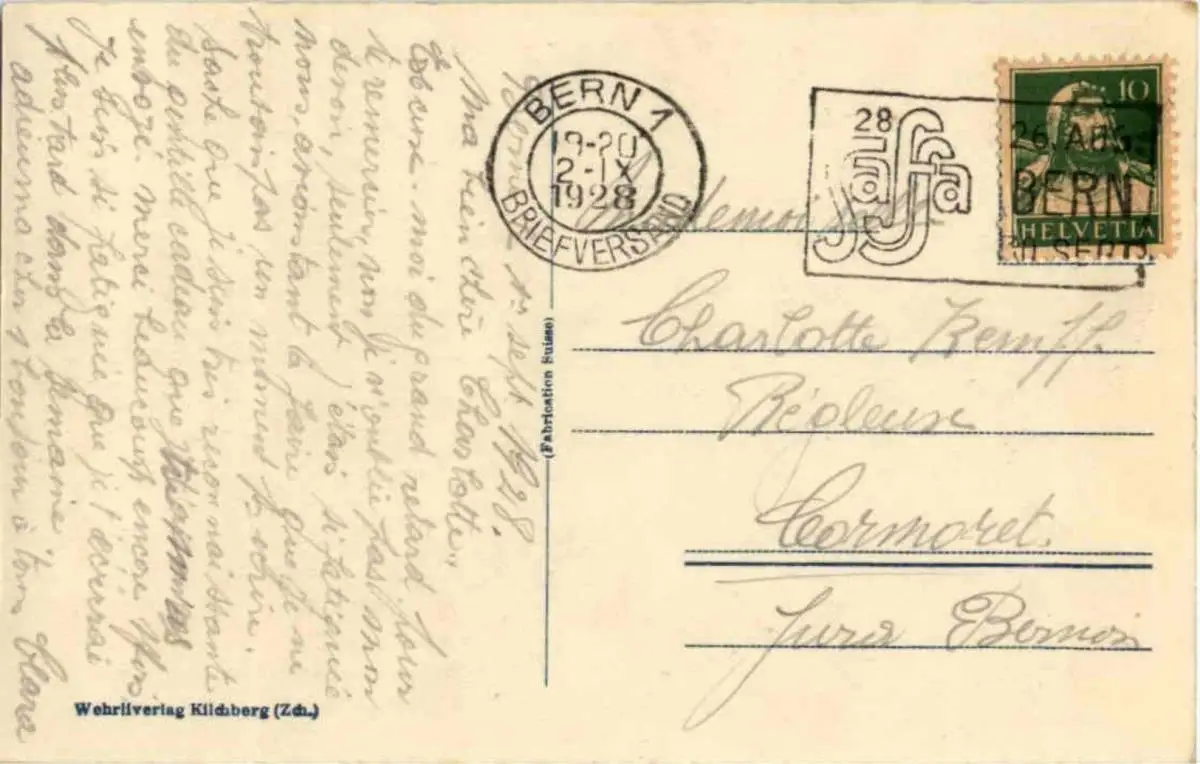 Berne 1er sept 1928.
Ma bien chère Charlotte,,
Excuse-moi du grand retard pour
te remercier, non je n'oublie pas mon
devoir, seulement j'étais si fatiguée
nous, avons tant à faire que je ne
trouvais pas un moment pr. écrire.
Sache que je suis très reconnaissante
du gentil cadeau que tu
envoyé. merci beaucoup encore
Je suis si fatiguée que je t'écrirai
plus tard dans la semaine
adieu ma chère bonjour à tous Clara
BERN 1
19-20
2-IX
1928
BRIEFVERSAND
28
saffa
26. AUG.
BERN
30. SEPT.
10
HELVETIA
Mademoiselle
Charlotte Kempff
Régleuse
Cormoret.
Jura Bernois
(Fabrication Suisse)
Wehrliverlag Kilchberg (Zch.)